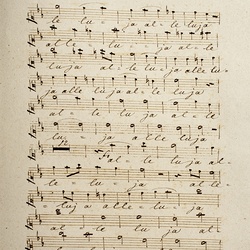 le lu - ja al - le luja
al le - lu - ja al - le
luja al - le - lu - ja alle lu -
ja alle luja al - le - lu - ja
al - le - lu - ja al - le -
lu - ja al - le - lu - ja
12 al - le luja al -
le - lu - ja al - le -
luja alle - lu - ja
al - le - lu - ja